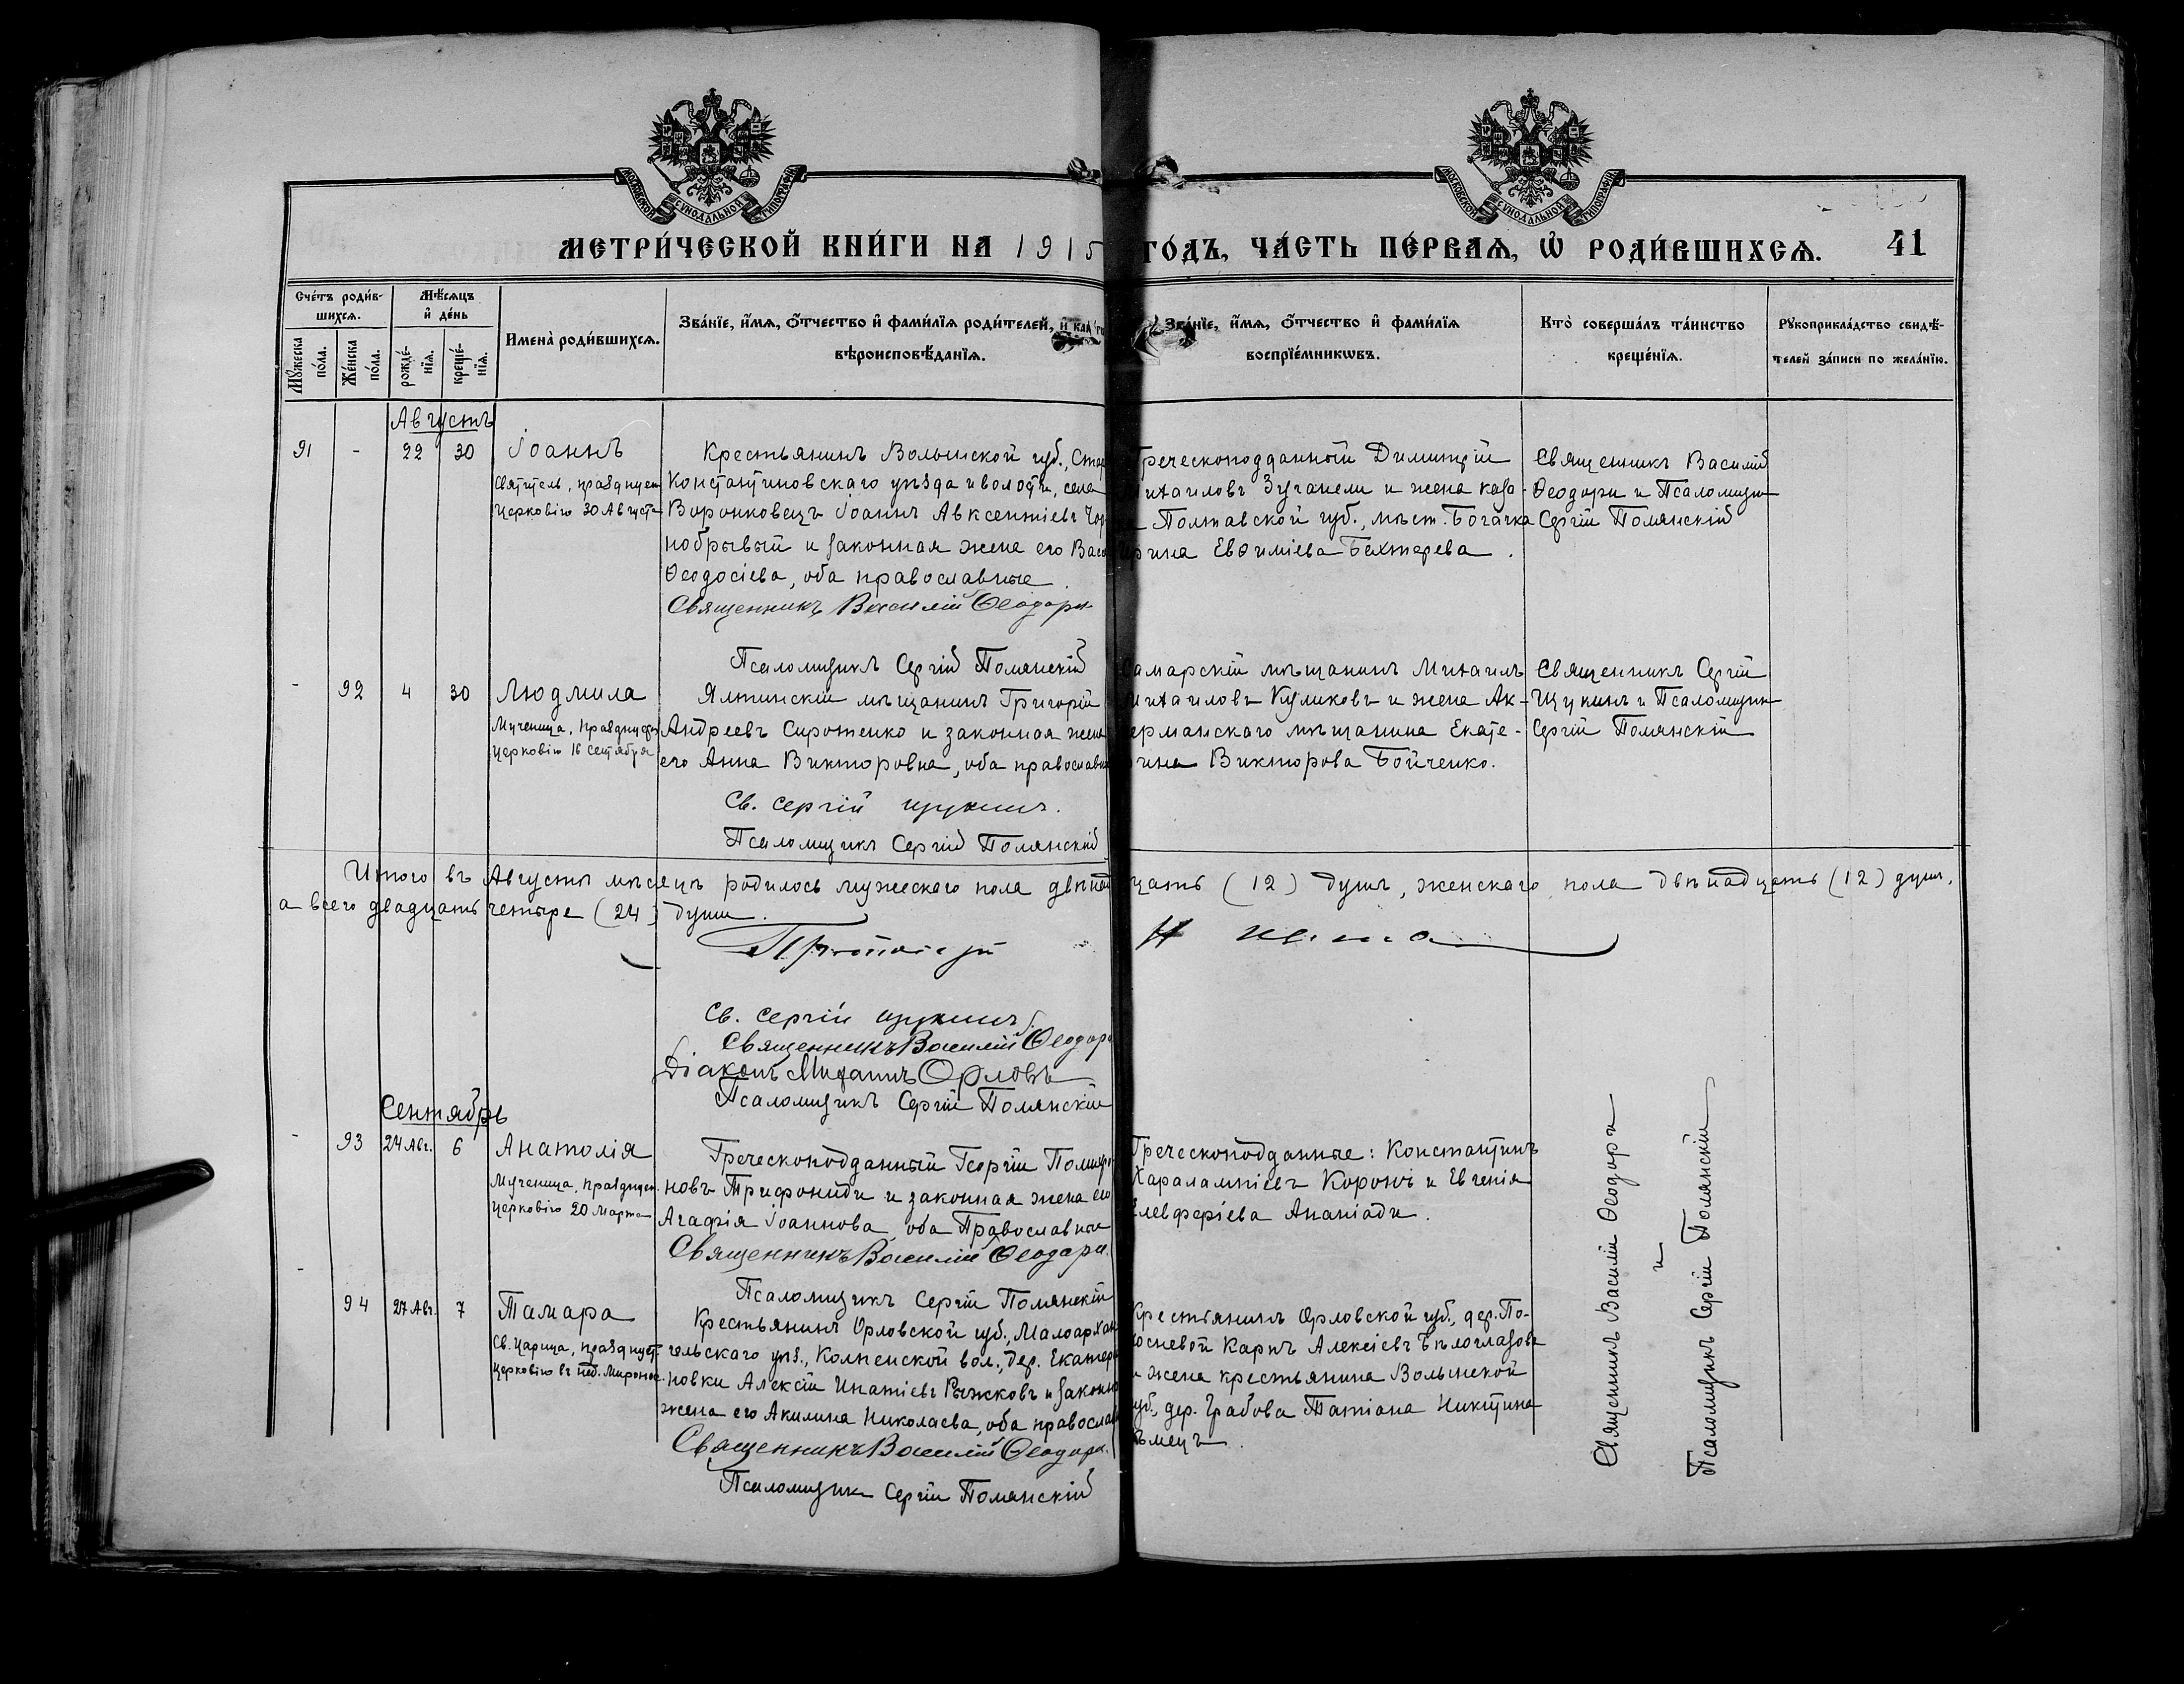 МОСКОВСКОЙ СѴНОДАЛЬНОЙ ТИПОГРАФІИ
МОСКОВСКОЙ СѴНОДАЛЬНОЙ ТИПОГРАФІИ
МЕТРИ́ЧЕСКОЙ КНИ́ГИ НА 1915 ГО́ДЪ, ЧА́СТЬ ПЕ́РВАѦ, Ѡ҆ РОДИ́ВШИХСѦ. 41
Счетъ роди́в-
шихсѧ.
Мꙋжеска по́ла.
Же́нска по́ла.
Мѣ́сѧцъ
и҆ де́нь
рожде́-
нїѧ.
креще́-
нїѧ.
Имена̀ роди́вшихсѧ.
Зва́нїе, и҆́мѧ, ѻ҆́тчество и҆ фами́лїѧ роди́телей, и҆
вѣроисповѣ́данїѧ.
Зва́нїе, и҆́мѧ, ѻ҆́тчество и҆ фами́лїѧ
воспрїе́мникѡвъ.
Кто̀ соверша́лъ та́инство
креще́нїѧ.
Рꙋкоприкла́дство свидѣ́-
телей за́писи по жела́нїю.
Августъ
91 - 22 30 Іоаннъ
Святитель, празднуем
Церковію 30 Августа
Крестьянинъ Волынской губ., Ста
Константиновскаго уѣзда и волости, села
Воронковецъ Іоаннъ Авксентіевъ Чор
нобрывый и законная жена его Васи
Ѳеодосіева, оба православные.
Священникъ Василій Ѳеодори
Псаломщикъ Сергій Полянскій
Греческоподданный Димитрій
Михаиловъ Зуганели и жена каза-
Полтавской губ., мѣст. Богачка
Ирина Евѳиміева Бехтерева.
Священникъ Василій
Ѳеодори и Псаломщик
Сергій Полянскій
- 92 4 30 Людмила
Мученица, празднуем
Церковію 16 Сентября
Ялтинскій мѣщанинъ Григорій
Андреевъ Сиротенко и законная жена
его Анна Викторовна, оба православн
Св. Сергій Щукинъ.
Псаломщикъ Сергій Полянскій
Самарскій мѣщанинъ Михаилъ
Михаиловъ Куликовъ и жена Ак-
ерманскаго мѣщанина Екате-
рина Викторова Бойченко.
Священникъ Сергій
Щукинъ и Псаломщик
Сергій Полянскій
Итого въ Августѣ мѣсяцѣ родилось мужескаго пола двѣнад
цать (12) душъ, женскаго пола двѣнадцать (12) душъ,
а всего двадцать четыре (24) души.
Протоіерей
Св. Сергій Щукинъ
Священникъ Василій Ѳеодори
Діаконъ Михаилъ Орловъ
Псаломщикъ Сергій Полянскій
Сентябрь
- 93 24 Авг. 6 Анатолія
Мученица, празднуем
Церковію 20 Марта
Греческоподданный Георгій
новъ Трифониди и законная жена его
Агафія Іоаннова, оба Православные
Священникъ Василій Ѳеодори.
Псаломщикъ Сергій Полянскій
Греческоподданные: Константинъ
Харалампіевъ и Евгенія
Елевферіева Ананіади.
- 94 27 Авг. 7 Тамара
Св. Царица, празднует
Церковію въ нед. Мироно
Крестьянинъ Орловской губ., Малоархан
гельскаго уѣз., Колпенской вол., дер. Екатери
новки Алексій Игнатіевъ Рыжковъ и законн
жена его Акилина Николаева, оба православ
Священникъ Василій Ѳеодори.
Псаломщик Сергій Полянскій
Крестьянинъ Орловской губ., дер. По-
Карпъ Алексіевъ Бѣлоглазовъ
и жена крестьянина Волынской
губ., дер. Грабова Татіана Никитина
Священникъ Василій Ѳеодори
и
Псаломщикъ Сергій Полянскій